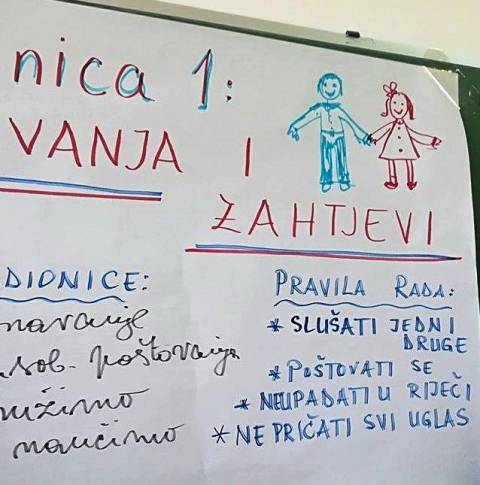 nica 1:
VANJA I
ZAHTJEVI
DIONICE:
poštovanja
naučimo
PRAVILA RADA:
* SLUŠATI JEDNI
DRUGE
* POŠTOVATI SE
* NEUPADATI U RIJEČI
* NE PRIČATI SVI UGLAS